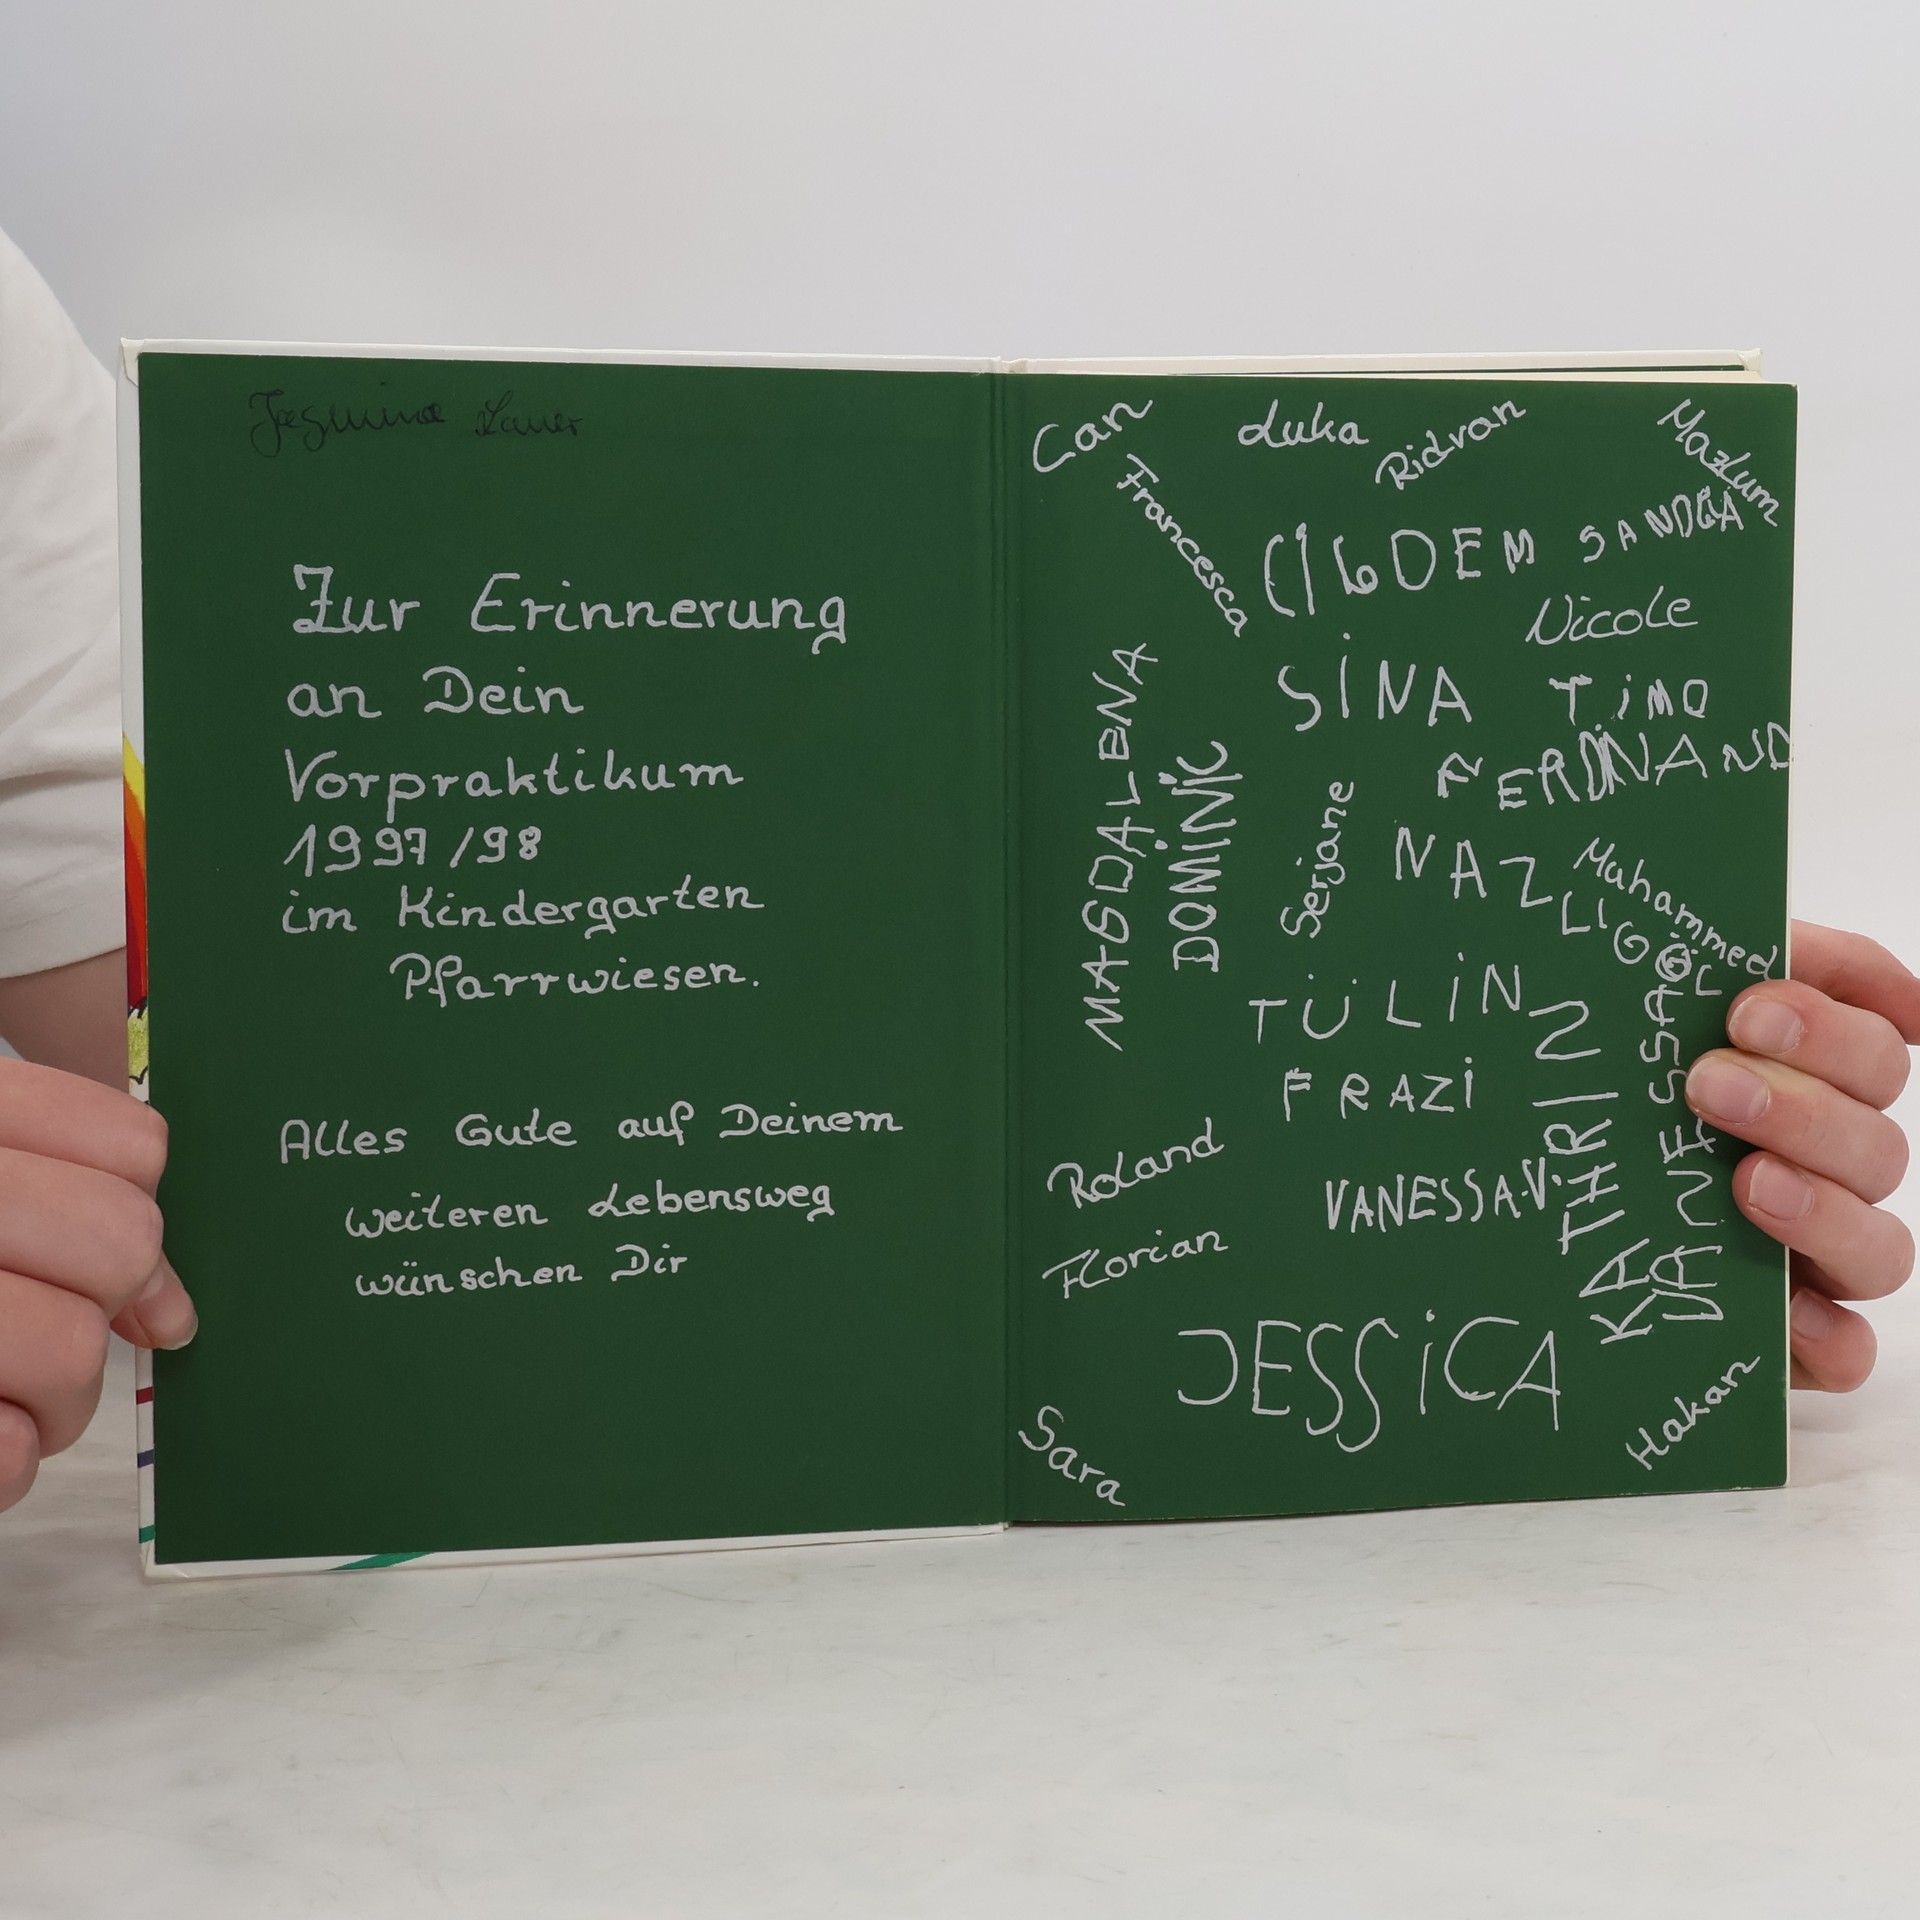 Zur Erinnerung
an Dein
Vorpraktikum
1997/98
im Kindergarten
Pfarrwiesen.
Alles Gute auf Deinem
weiteren Lebensweg
wünschen Dir
Can
Luka
Ridvan
Mazlum
Francesca
CIGDEM
SANDRA
Nicole
SiNA
TiMO
MAGDALENA
DOMiNiC
FERDiNAND
Serjane
NAZLIGÖL
Muhammed
TÜLiN
FRAZi
KATHRIN
VANESSA
Roland
VANESSA.V.
Florian
JESSiCA
Sara
Hakan